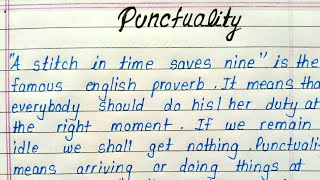 Punctuality
"A stitch in time saves nine" is the
famous english proverb. It means that
everybody should do his/her duty at
the right moment. If we remain
idle we shall get nothing. Punctuali
means arriving or doing things at